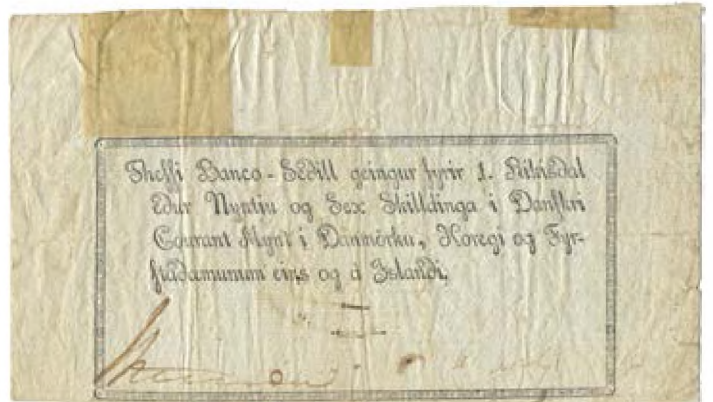 Thessi Banco-Sedill geingur fyrir 1. Rikisdal
Edur Nyntiu og Sex Skilldinga i Danskri
Courant Mynt i Danmörku, Noregi og Fyr-
stadamunum eins og á Islandi.